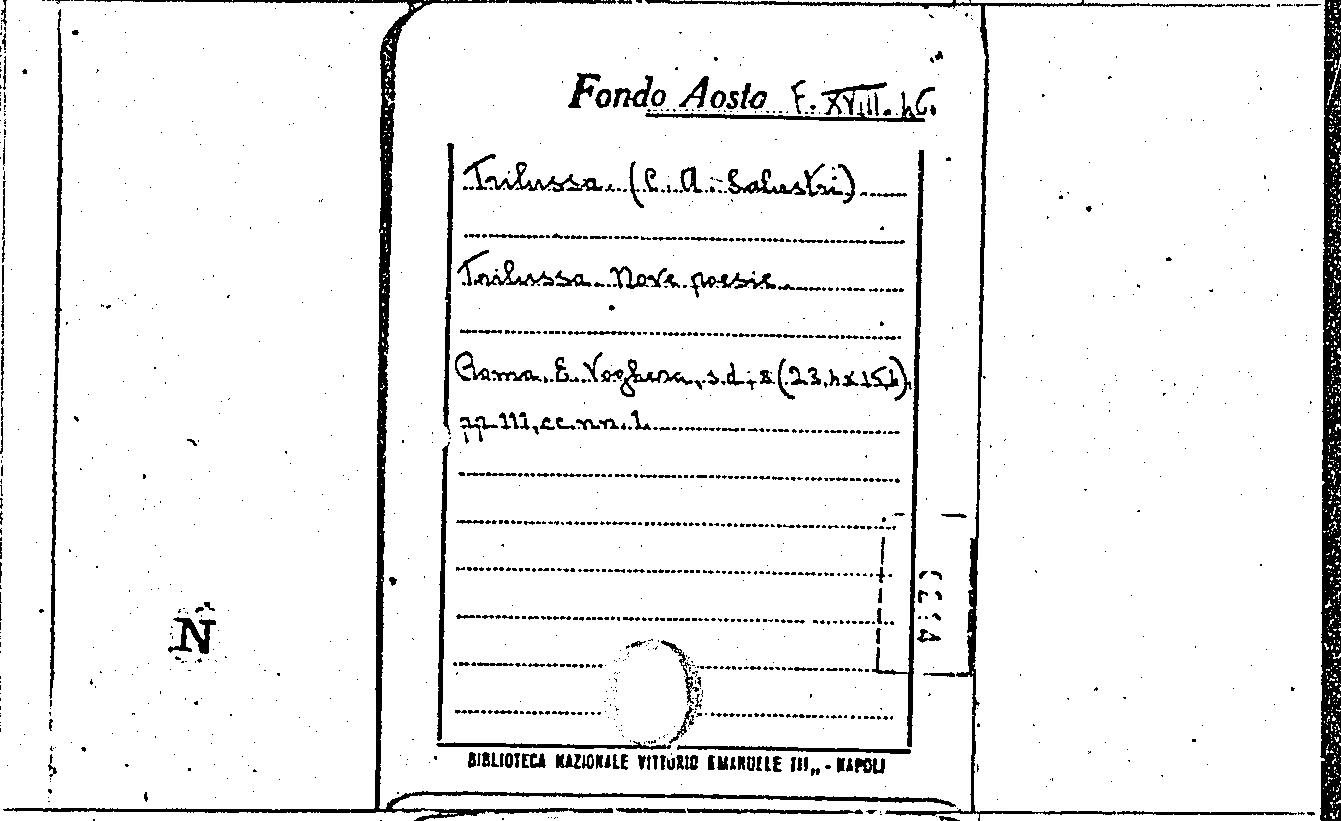 Fondo Aosta F. XVIII. 46.
Trilussa (C. A. Salustri)
Trilussa Nove poesie
Roma, E. Voghera, s.d., 8 (23,4x15,4)
pp 111, cc. nn. 1.
N
BIBLIOTECA NAZIONALE VITTORIO EMANUELE III„ - NAPOLI